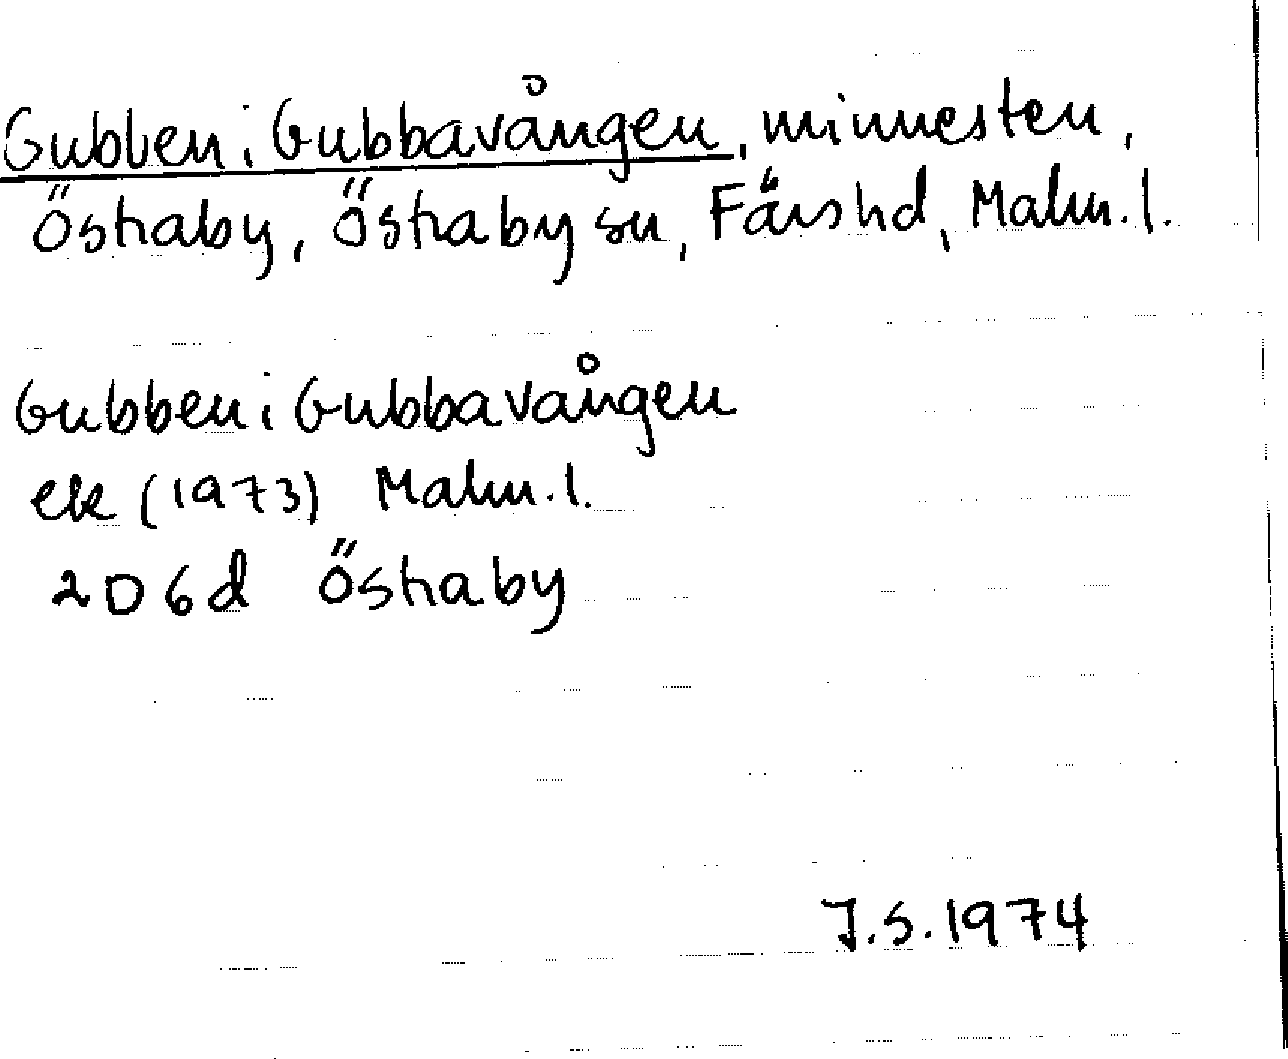 Gubben i Gubbavången, minnesten,
Östraby, Östraby sn, Färs hd, Malm. l.
Gubben i Gubbavången
ek (1973) Malm. l.
2D6d Östraby
J.S. 1974